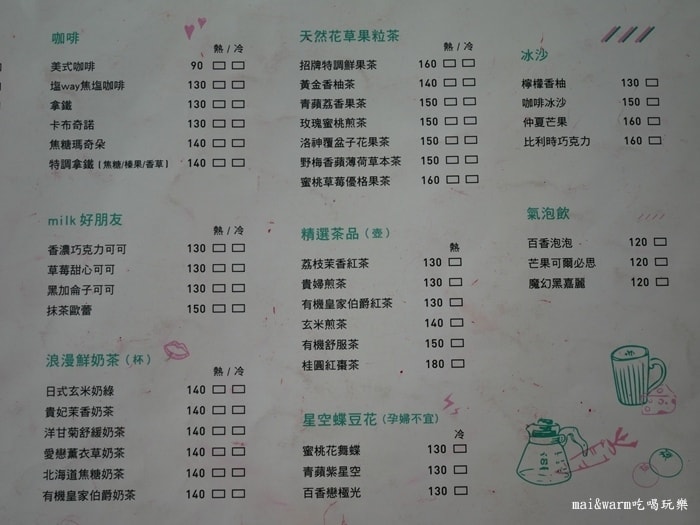 咖啡
熱 / 冷
美式咖啡 90
塩way焦塩咖啡 130
拿鐵 130
卡布奇諾 130
焦糖瑪奇朵 140
特調拿鐵 [ 焦糖/榛果/香草 ] 140
milk 好朋友
熱 / 冷
香濃巧克力可可 130
草莓甜心可可 130
黑加侖子可可 130
抹茶歐蕾 150
浪漫鮮奶茶 (杯)
熱 / 冷
日式玄米奶綠 140
貴妃茉香奶茶 140
洋甘菊舒緩奶茶 140
愛戀薰衣草奶茶 140
北海道焦糖奶茶 140
有機皇家伯爵奶茶 140
天然花草果粒茶
熱 / 冷
招牌特調鮮果茶 160
黃金香柚茶 140
青蘋荔香果茶 150
玫瑰蜜桃煎茶 150
洛神覆盆子花果茶 150
野梅香蘋薄荷草本茶 150
蜜桃草莓優格果茶 160
精選茶品 (壺)
熱
荔枝茉香紅茶 130
貴婦煎茶 130
有機皇家伯爵紅茶 130
玄米煎茶 140
有機舒服茶 150
桂圓紅棗茶 180
星空蝶豆花 (孕婦不宜)
冷
蜜桃花舞蝶 130
青蘋紫星空 130
百香戀極光 130
冰沙
檸檬香柚 130
咖啡冰沙 150
仲夏芒果 160
比利時巧克力 160
氣泡飲
百香泡泡 120
芒果可爾必思 120
魔幻黑嘉麗 120
mai&warm吃喝玩樂